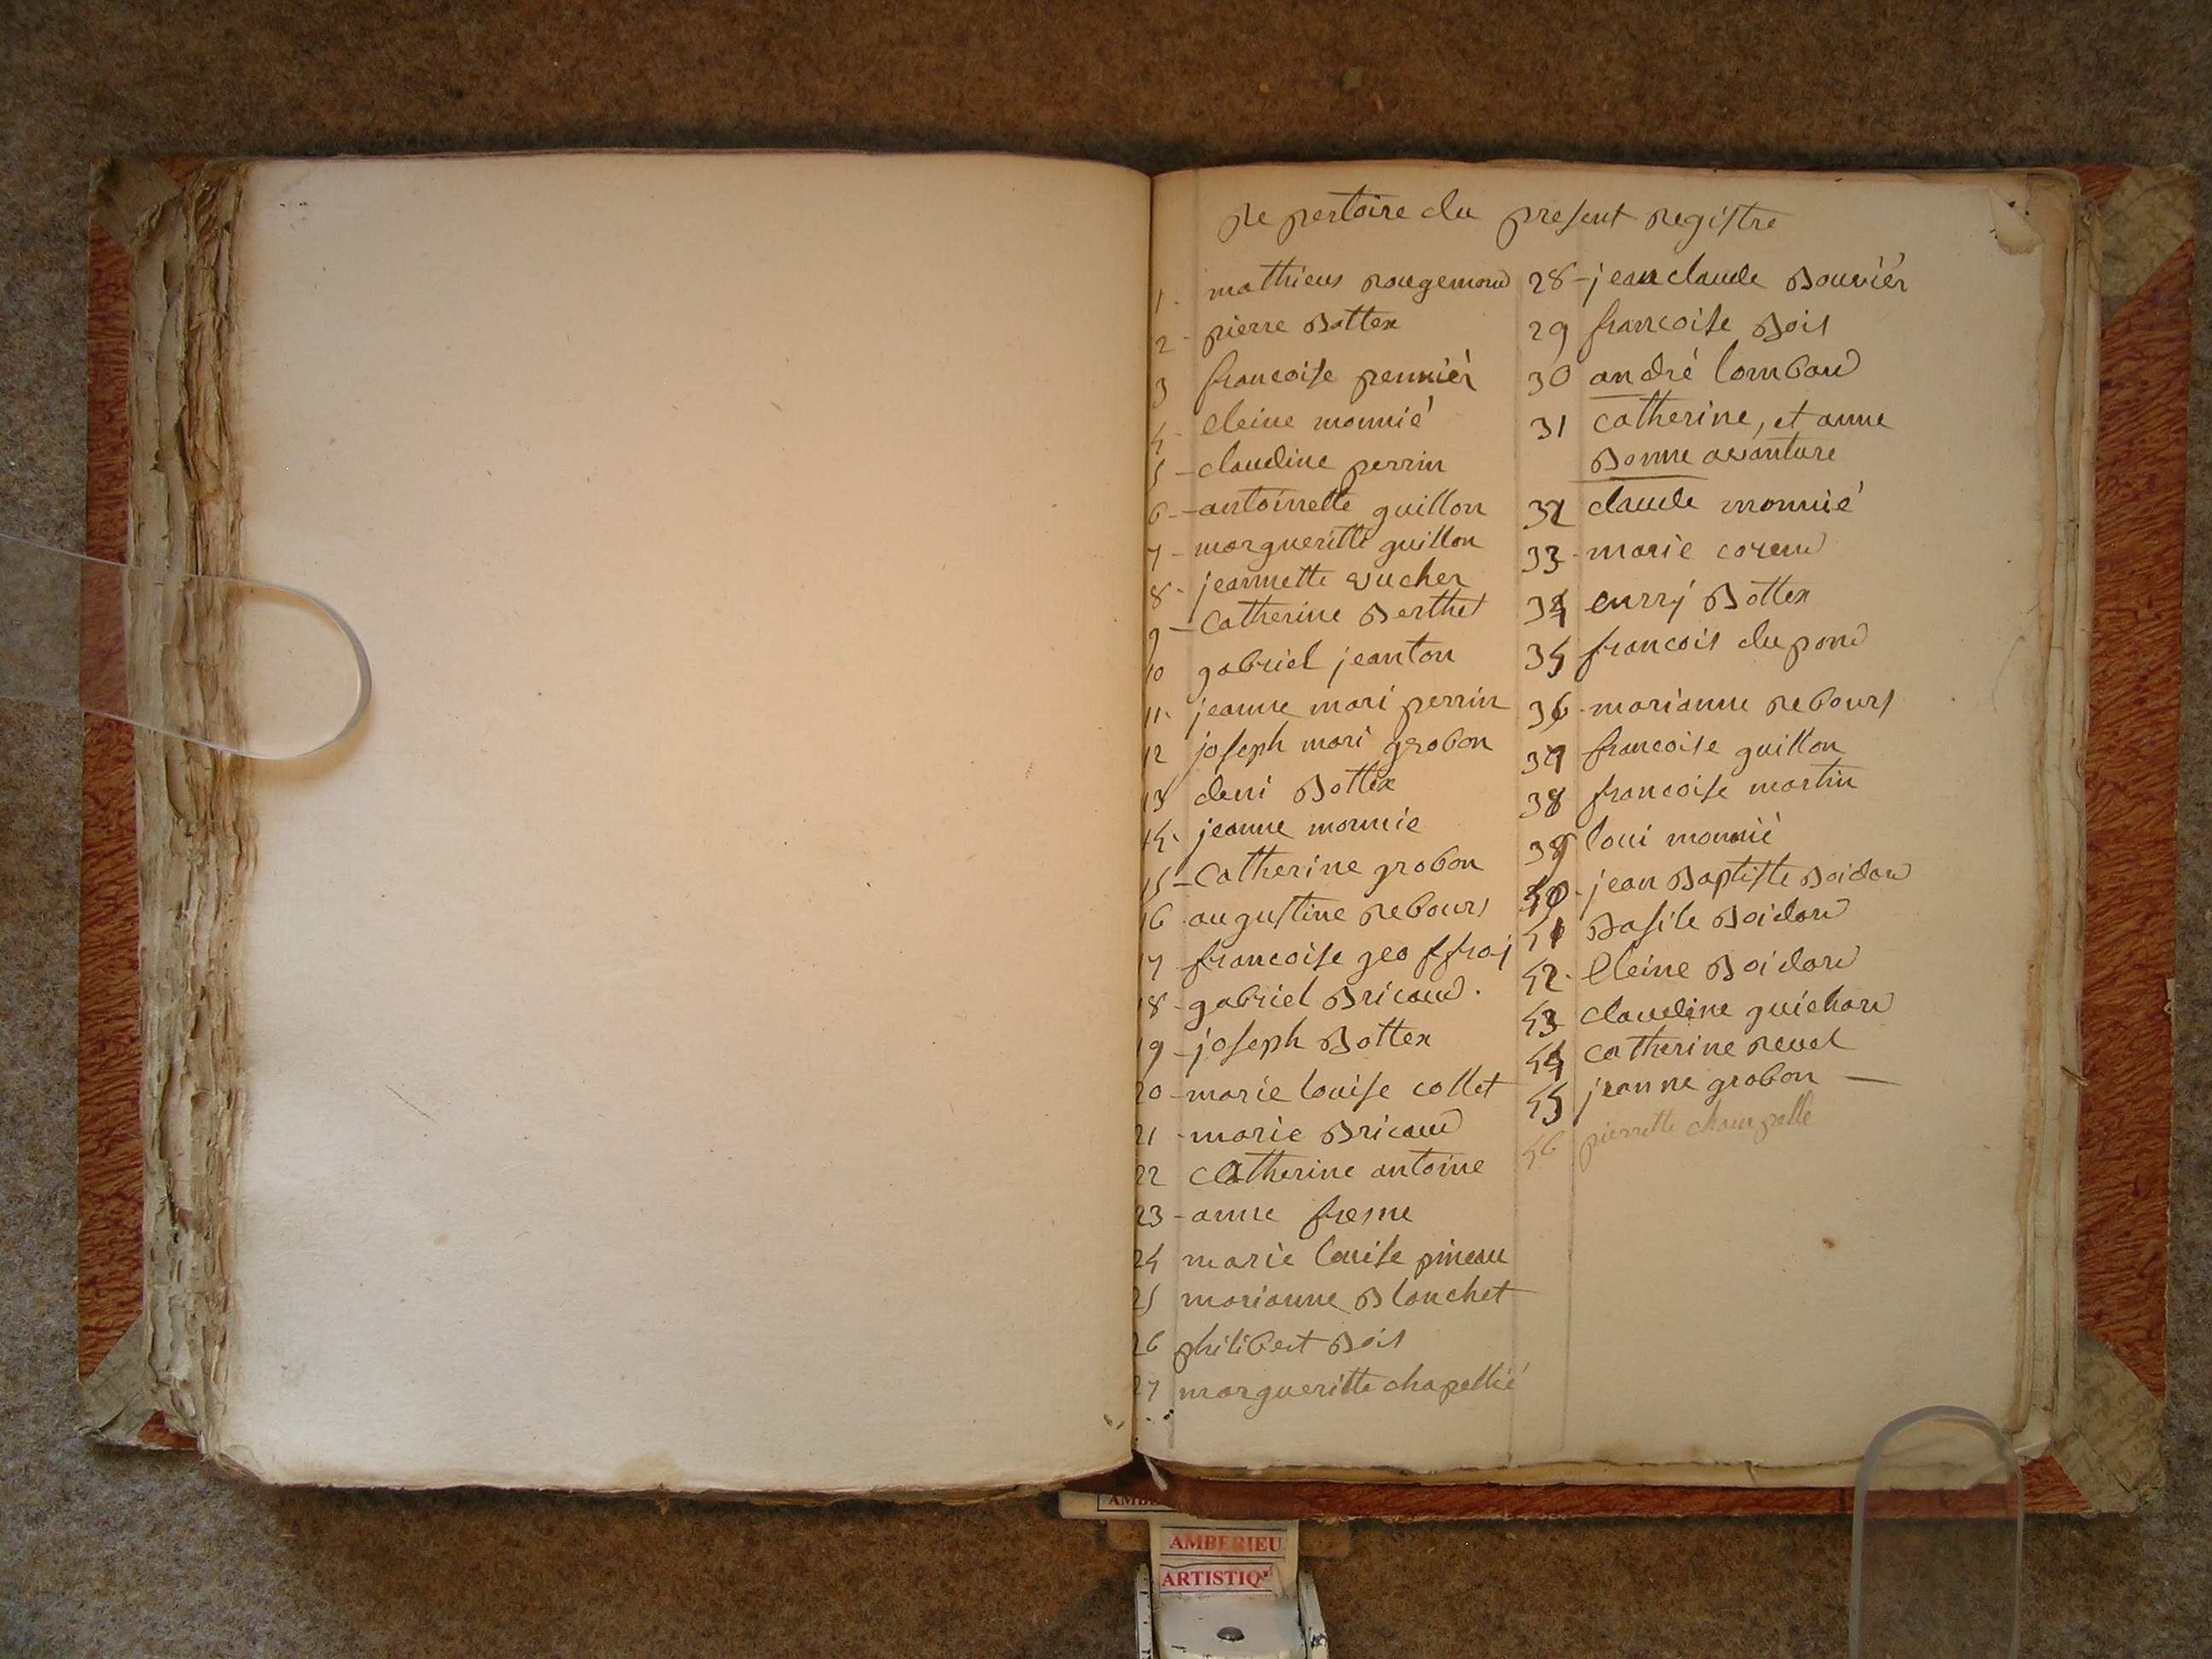 Repertoire du present registre
1. mathieus rougemond
2 - pierre Bottex
3 francoise pennièr
4 - eleine monnié
5 - claudine perrin
6 - antoinette guillon
7 - margueritte guillon
8 - jeannette vucher
9 - Catherine Berthet
10 gabriel jeanton
11. jeanne mari perrin
12 joseph mari grobon
13 deni Bottex
14. jeanne monnie
15 - Catherine grobon
16 augustine rebours
17 francoise geoffraj
18 - gabriel Bricaud.
19 - joseph Bottex
20 - marie louise collet
21 - marie Bricaud
22 Catherine antoine
23 - anne fresne
24 marie louise pineau
25 marianne Blanchet
26 philibert Bois
27 margueritte chapellié
28 - jean claude Bouvièr
29 francoise Bois
30 andré lombard
31 catherine, et anne
Bonne avanture
32 claude monnié
33 - marie
34 Bottex
35 francois dupond
36 - marianne rebours
37 francoise guillon
38 francoise martin
39 loui monnié
40 - jean Baptiste Boidard
41 Basile Boidard
42 - eleine Boidard
43 claudine guichard
44 catherine revel
45 jeanne grobon —
46 pierrette
AMBERIEU
ARTISTIQ